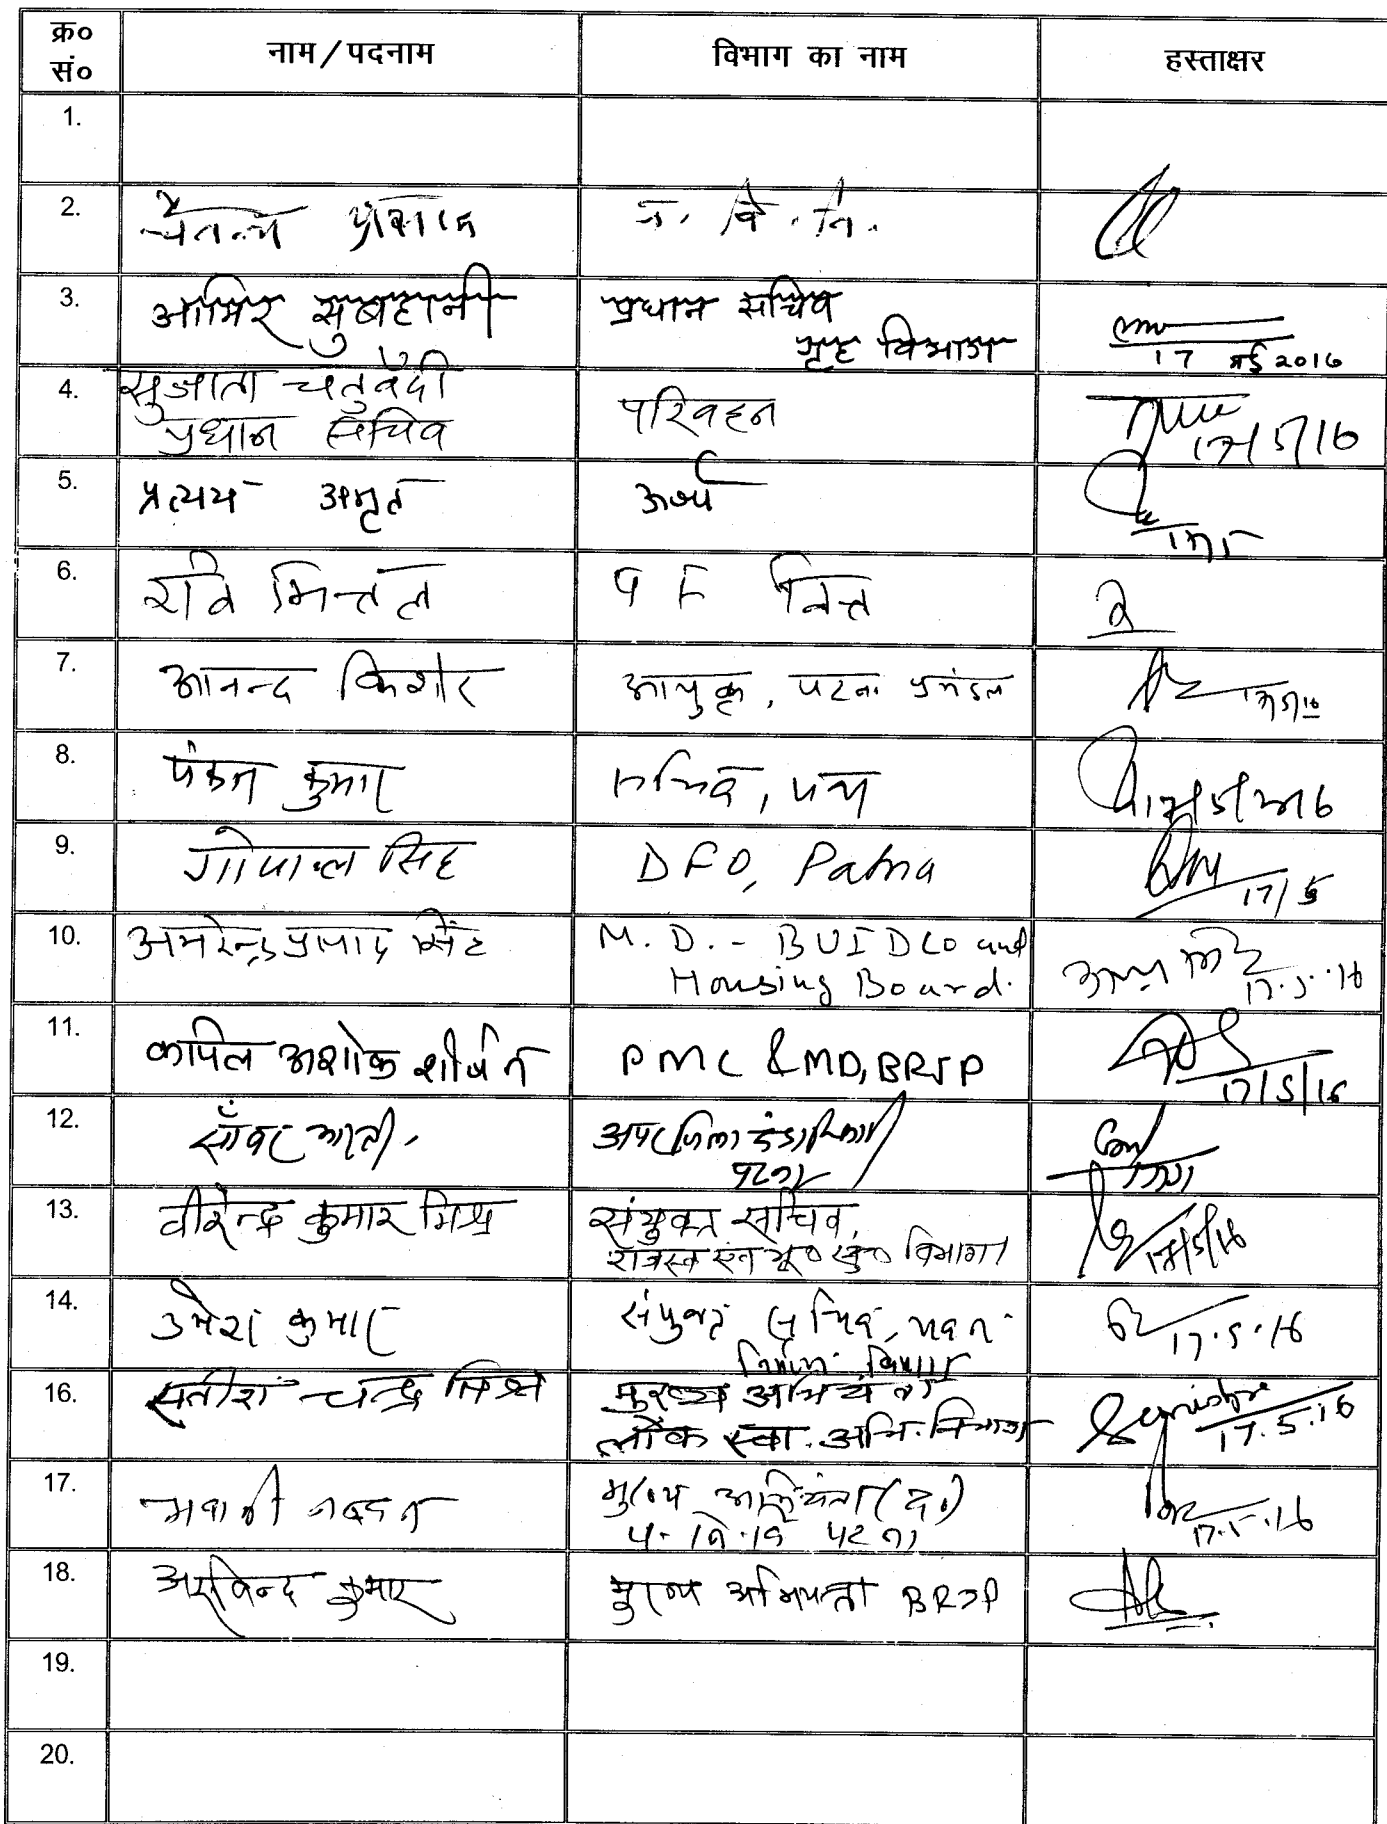 क्र०
सं०
नाम/पदनाम
विभाग का नाम
हस्ताक्षर
1.
2.
चैतन्य प्रसाद
न. वि. वि.
3.
आमिर सुबहानी
प्रधान सचिव
गृह विभाग
17 मई 2016
4.
सुजाता चतुर्वेदी
प्रधान सचिव
परिवहन
17/5/16
5.
प्रत्यय अमृत
ऊर्जा
6.
रवि मित्तल
वित्त
7.
आनन्द किशोर
आयुक्त, पटना प्रमंडल
17/5/16
8.
पंकज कुमार
सचिव, पथ
17/5/2016
9.
गोपाल सिंह
DFO, Patna
17/5
10.
अमरेन्द्र प्रसाद सिंह
M. D. - BUIDCO and
Housing Board.
17.5.16
11.
कपिल अशोक शीर्षत
PMC & MD, BRJP
17/5/16
12.
साँवर भारती.
अपर जिला दंडाधिकारी
पटना
13.
वीरेन्द्र कुमार मिश्र
संयुक्त सचिव,
राजस्व एवं भू० सु० विभाग।
17/5/16
14.
उमेश कुमार
संयुक्त सचिव, भवन
निर्माण विभाग
17.5.16
16.
सतीश चन्द्र मिश्र
मुख्य अभियंता
लोक स्वा. अभि. विभाग
17.5.16
17.
भवानी नन्दन
मुख्य अभियंता (द.)
प. नि. वि. पटना
17.5.16
18.
अरविन्द कुमार
मुख्य अभियन्ता BRJP
19.
20.